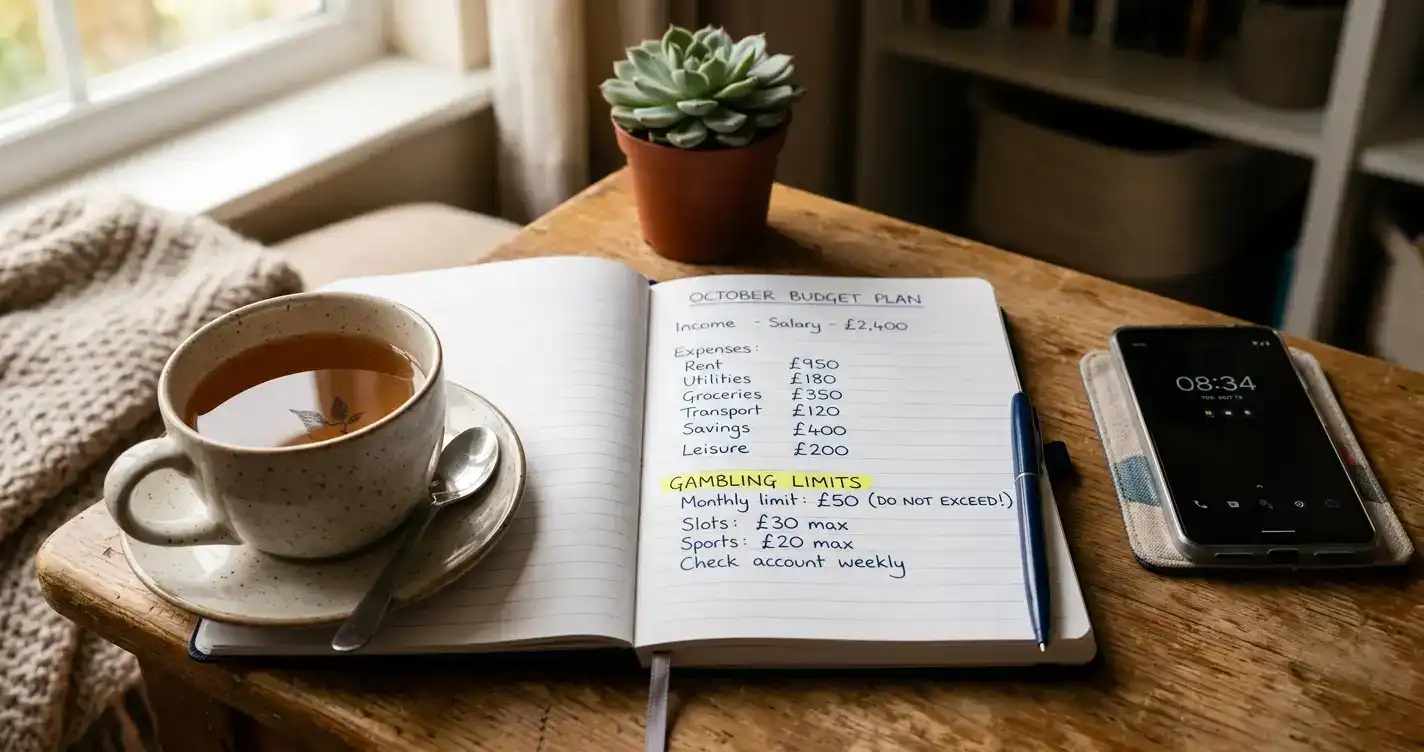 OCTOBER BUDGET PLAN
Income - Salary - £2,400
Expenses:
Rent £950
Utilities £180
Groceries £350
Transport £120
Savings £400
Leisure £200
GAMBLING LIMITS
Monthly limit: £50 (DO NOT EXCEED!)
Slots: £30 max
Sports: £20 max
Check account weekly
08:34